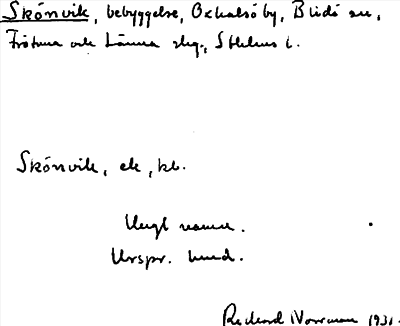 Skönvik, bebyggelse, Oxhalsö by, Blidö sn,
Frötuna och Länna skg., Sthlms l.
Skönvik, ek, kb.
Ungt namn.
Urspr. lund.
Richard Norrman 1931.